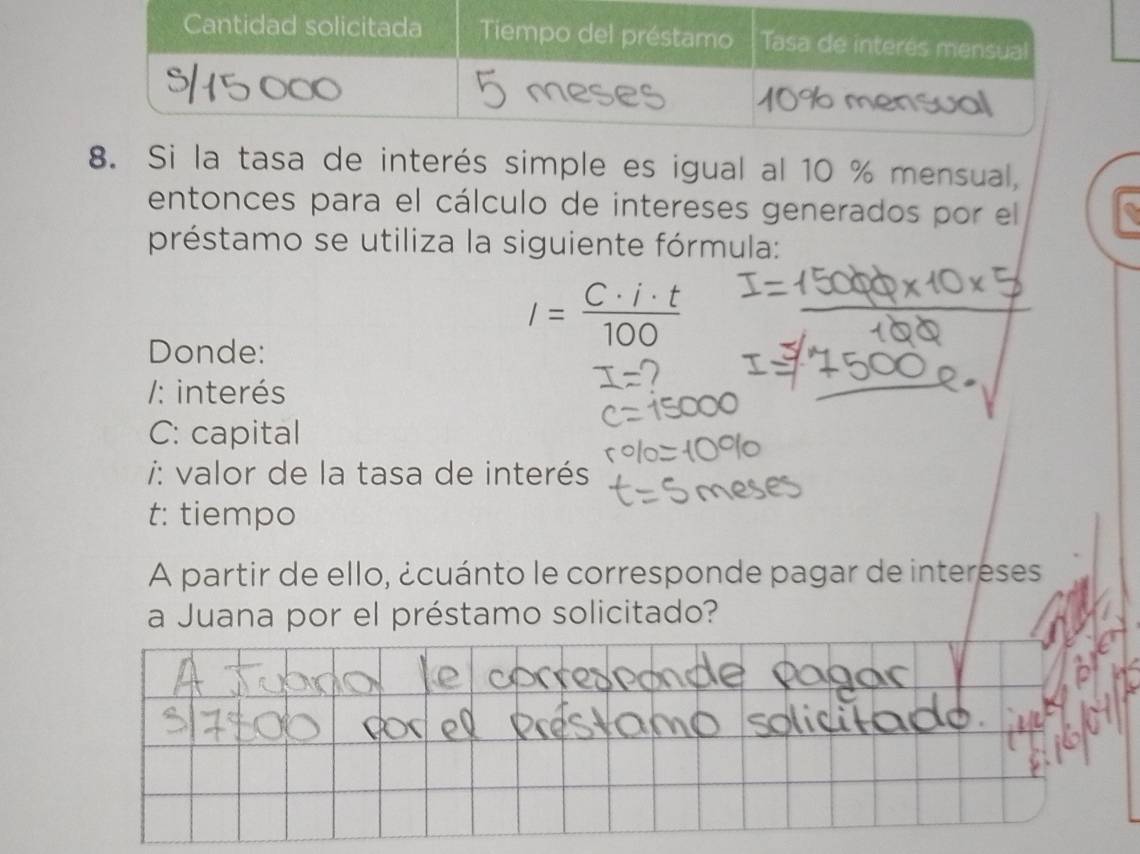 Cantidad solicitada Tiempo del préstamo Tasa de interés mensual
S/15 000 5 meses 10% mensual
8. Si la tasa de interés simple es igual al 10 % mensual,
entonces para el cálculo de intereses generados por el
préstamo se utiliza la siguiente fórmula:
I = C · i · t / 100
I = 15000 x 10 x 5 / 100
Donde:
I = S/ 7500
I=?
I: interés
C=15000
C: capital
r%=10%
i: valor de la tasa de interés
t=5 meses
t: tiempo
A partir de ello, ¿cuánto le corresponde pagar de intereses
a Juana por el préstamo solicitado?
A Juana le corresponde pagar
S/7500 por el préstamo solicitado.
bien